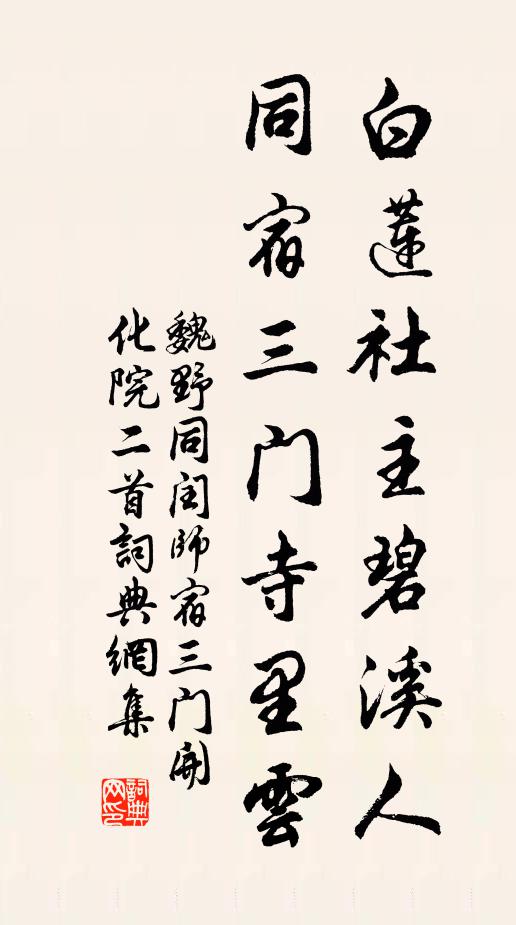 白蓮社主碧溪人
同宿三门寺里雲
魏野同闰師宿三门開
化院二首詞典網集
詞典
网印